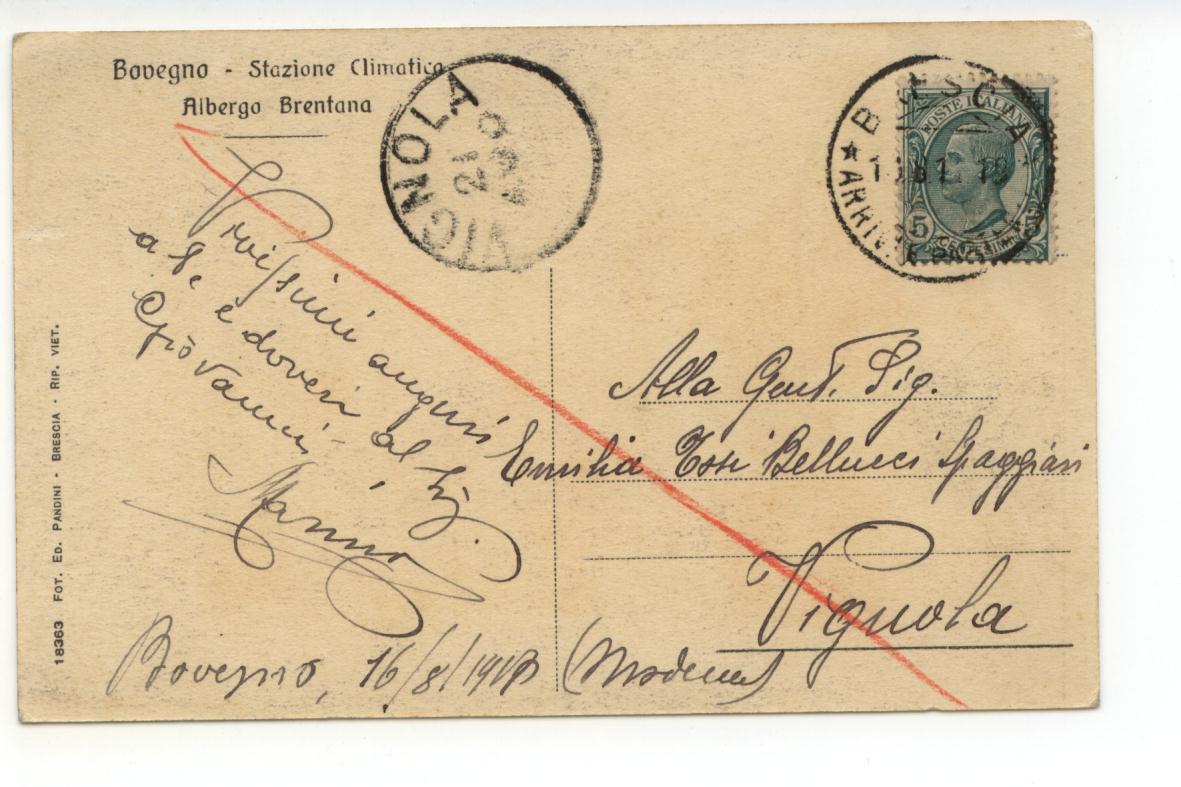 Bovegno - Stazione Climatica
Albergo Brentana
VIGNOLA
21
POSTE ITALIANE
5
Vivissimi auguri
a Se e doveri al Sig.
Giovanni
Alla Gent. Sig.
Emilia Tosi Bellucci Spaggiari
Vignola
(Modena)
Bovegno, 16/8/1918
18363 FOT. ED. PANDINI - BRESCIA - RIP. VIET.